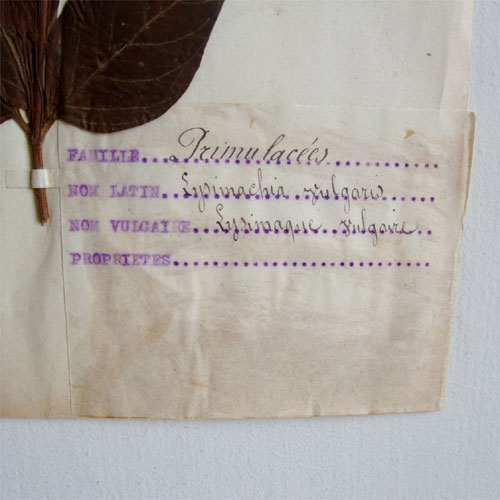 FAMILLE... Primulacées............
NOM LATIN.. Lysimachia vulgaris......
NOM VULGAIRE... Lysimaque vulgaire..
PROPRIETES..............................